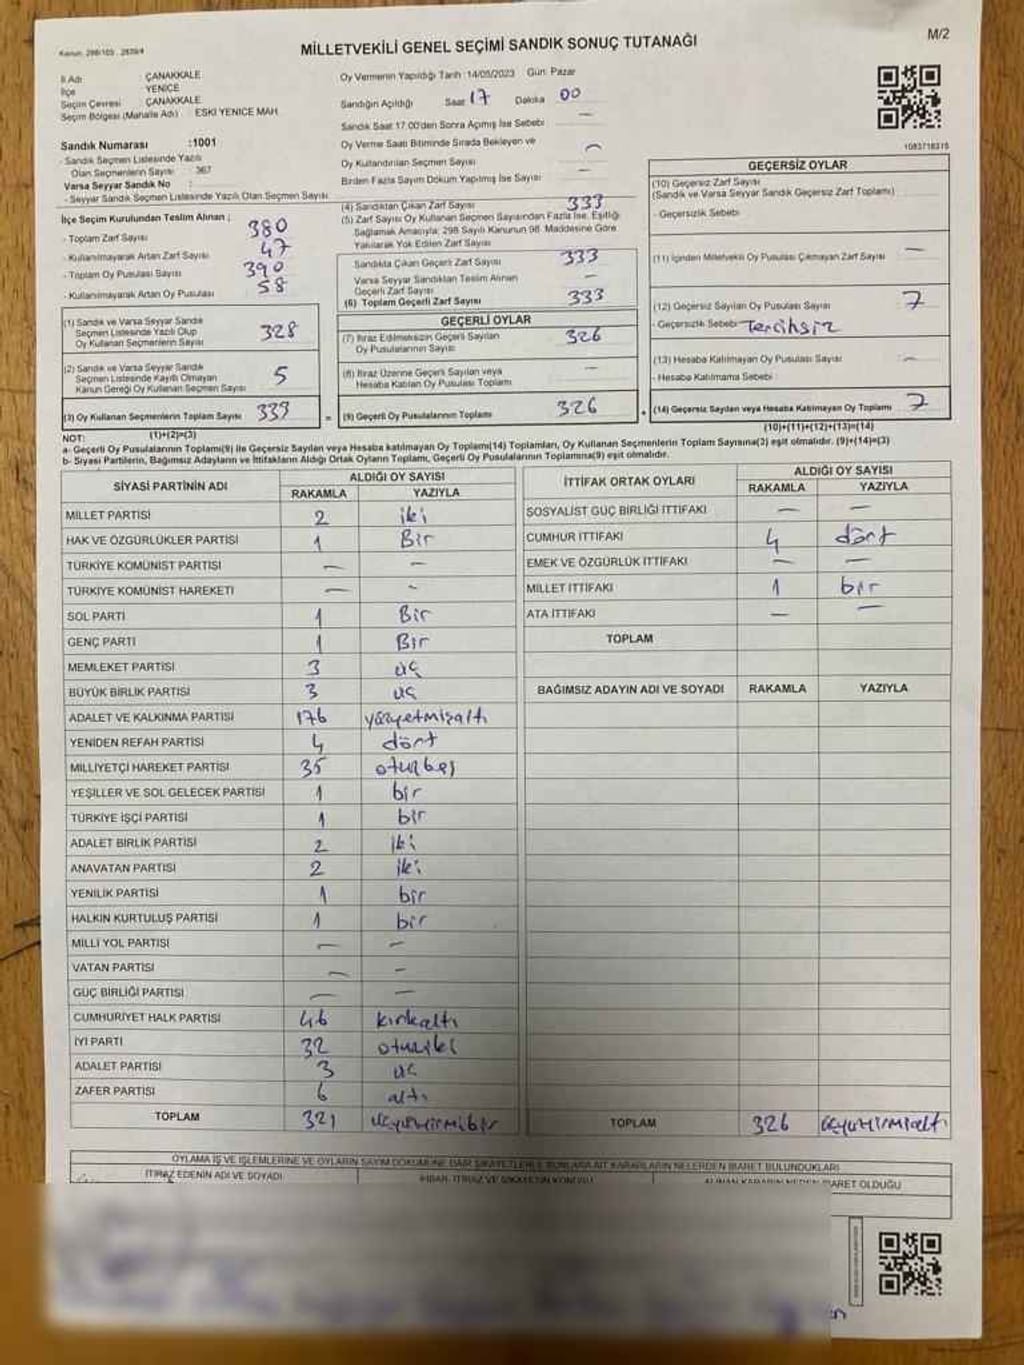 Kanun: 298/105 , 2839/4
MİLLETVEKİLİ GENEL SEÇİMİ SANDIK SONUÇ TUTANAĞI
M/2
İl Adı : ÇANAKKALE
İlçe : YENİCE
Seçim Çevresi : ÇANAKKALE
Seçim Bölgesi (Mahalle Adı) : ESKİ YENİCE MAH
Sandık Numarası :1001
- Sandık Seçmen Listesinde Yazılı
Olan Seçmenlerin Sayısı : 367
Varsa Seyyar Sandık No :
- Seyyar Sandık Seçmen Listesinde Yazılı Olan Seçmen Sayısı
İlçe Seçim Kurulundan Teslim Alınan ;
- Toplam Zarf Sayısı 380
- Kullanılmayarak Artan Zarf Sayısı 47
- Toplam Oy Pusulası Sayısı 390
- Kullanılmayarak Artan Oy Pusulası 58
(1) Sandık ve Varsa Seyyar Sandık
Seçmen Listesinde Yazılı Olup
Oy Kullanan Seçmenlerin Sayısı 328
(2) Sandık ve Varsa Seyyar Sandık
Seçmen Listesinde Kayıtlı Olmayan
Kanun Gereği Oy Kullanan Seçmen Sayısı 5
(3) Oy Kullanan Seçmenlerin Toplam Sayısı 333
(1)+(2)=(3)
Oy Vermenin Yapıldığı Tarih :14/05/2023 Gün: Pazar
Sandığın Açıldığı Saat 17 Dakika 00
Sandık Saat 17.00'den Sonra Açılmış İse Sebebi —
Oy Verme Saati Bitiminde Sırada Bekleyen ve
Oy Kullandırılan Seçmen Sayısı —
Birden Fazla Sayım Döküm Yapılmış İse Sayısı —
(4) Sandıktan Çıkan Zarf Sayısı 333
(5) Zarf Sayısı Oy Kullanan Seçmen Sayısından Fazla İse, Eşitliği
Sağlamak Amacıyla; 298 Sayılı Kanunun 98. Maddesine Göre
Yakılarak Yok Edilen Zarf Sayısı
Sandıkta Çıkan Geçerli Zarf Sayısı 333
Varsa Seyyar Sandıktan Teslim Alınan
Geçerli Zarf Sayısı —
(6) Toplam Geçerli Zarf Sayısı 333
GEÇERLİ OYLAR
(7) İtiraz Edilmeksizin Geçerli Sayılan
Oy Pusulalarının Sayısı 326
(8) İtiraz Üzerine Geçerli Sayılan veya
Hesaba Katılan Oy Pusulası Toplamı —
= (9) Geçerli Oy Pusulalarının Toplamı 326
1083718315
GEÇERSİZ OYLAR
(10) Geçersiz Zarf Sayısı
(Sandık ve Varsa Seyyar Sandık Geçersiz Zarf Toplamı)
- Geçersizlik Sebebi
(11) İçinden Milletvekili Oy Pusulası Çıkmayan Zarf Sayısı —
(12) Geçersiz Sayılan Oy Pusulası Sayısı 7
- Geçersizlik Sebebi Tercihsiz
(13) Hesaba Katılmayan Oy Pusulası Sayısı —
- Hesaba Katılmama Sebebi
+ (14) Geçersiz Sayılan veya Hesaba Katılmayan Oy Toplamı 7
(10)+(11)+(12)+(13)=(14)
NOT:
a- Geçerli Oy Pusulalarının Toplamı(9) ile Geçersiz Sayılan veya Hesaba katılmayan Oy Toplamı(14) Toplamları, Oy Kullanan Seçmenlerin Toplam Sayısına(3) eşit olmalıdır. (9)+(14)=(3)
b- Siyasi Partilerin, Bağımsız Adayların ve İttifakların Aldığı Ortak Oyların Toplamı, Geçerli Oy Pusulalarının Toplamına(9) eşit olmalıdır.
SİYASİ PARTİNİN ADI ALDIĞI OY SAYISI
RAKAMLA YAZIYLA
MİLLET PARTİSİ 2 iki
HAK VE ÖZGÜRLÜKLER PARTİSİ 1 Bir
TÜRKİYE KOMÜNİST PARTİSİ — —
TÜRKİYE KOMÜNİST HAREKETİ — —
SOL PARTİ 1 Bir
GENÇ PARTİ 1 Bir
MEMLEKET PARTİSİ 3 üç
BÜYÜK BİRLİK PARTİSİ 3 üç
ADALET VE KALKINMA PARTİSİ 176 yüzyetmişaltı
YENİDEN REFAH PARTİSİ 4 dört
MİLLİYETÇİ HAREKET PARTİSİ 35 otuzbeş
YEŞİLLER VE SOL GELECEK PARTİSİ 1 bir
TÜRKİYE İŞÇİ PARTİSİ 1 bir
ADALET BİRLİK PARTİSİ 2 iki
ANAVATAN PARTİSİ 2 iki
YENİLİK PARTİSİ 1 bir
HALKIN KURTULUŞ PARTİSİ 1 bir
MİLLİ YOL PARTİSİ — —
VATAN PARTİSİ — —
GÜÇ BİRLİĞİ PARTİSİ — —
CUMHURİYET HALK PARTİSİ 46 kırkaltı
İYİ PARTİ 32 otuziki
ADALET PARTİSİ 3 üç
ZAFER PARTİSİ 6 altı
TOPLAM 321 üçyüzyirmibir
İTTİFAK ORTAK OYLARI ALDIĞI OY SAYISI
RAKAMLA YAZIYLA
SOSYALİST GÜÇ BİRLİĞİ İTTİFAKI — —
CUMHUR İTTİFAKI 4 dört
EMEK VE ÖZGÜRLÜK İTTİFAKI — —
MİLLET İTTİFAKI 1 bir
ATA İTTİFAKI — —
TOPLAM
BAĞIMSIZ ADAYIN ADI VE SOYADI RAKAMLA YAZIYLA
TOPLAM 326 üçyüzyirmialtı
OYLAMA İŞ VE İŞLEMLERİNE VE OYLARIN SAYIM DÖKÜMÜNE DAİR ŞİKAYETLERLE BUNLARA AİT KARARLARIN NELERDEN İBARET BULUNDUKLARI
İTİRAZ EDENİN ADI VE SOYADI